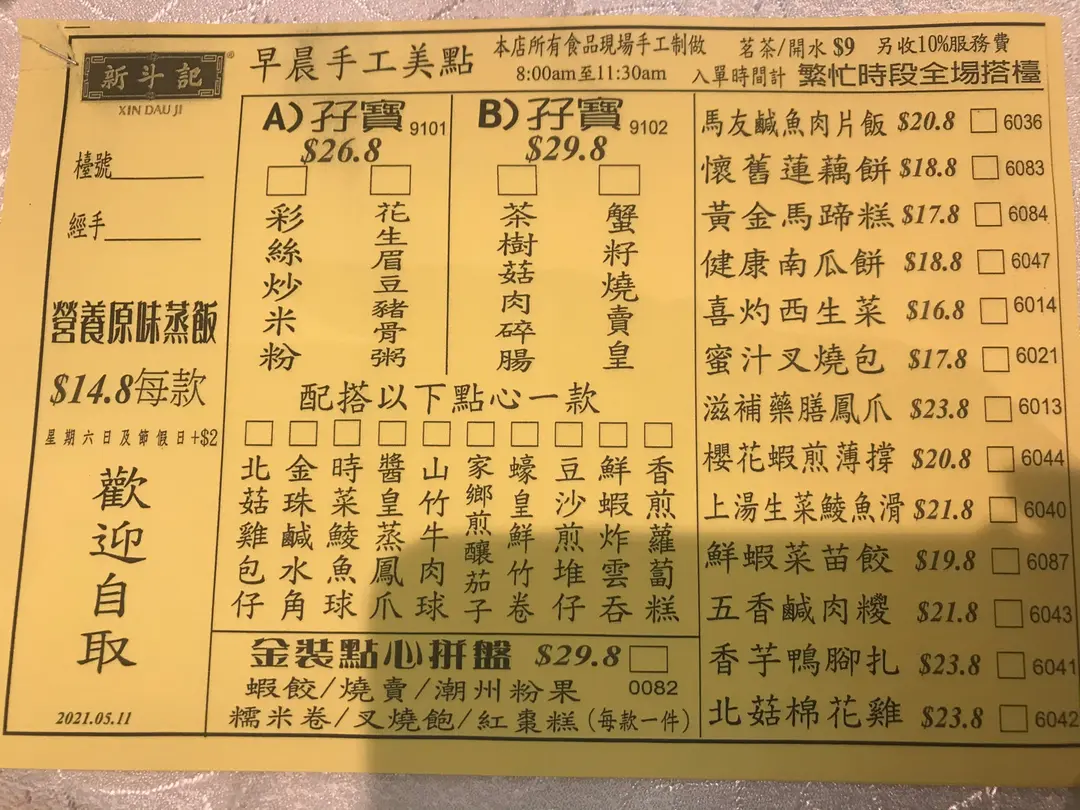 新斗記
XIN DAU JI
早晨手工美點
本店所有食品現場手工制做
8:00am至11:30am
茗茶/開水 $9 另收10%服務費
入單時間計 繁忙時段全場搭檯
檯號
經手
營養原味蒸飯
$14.8每款
星期六日及節假日+$2
歡迎自取
2021.05.11
A)孖寶 9101
$26.8
彩絲炒米粉
花生眉豆豬骨粥
B)孖寶 9102
$29.8
茶樹菇肉碎腸
蟹籽燒賣皇
配搭以下點心一款
北菇雞包仔
金珠鹹水角
時菜鯪魚球
醬皇蒸鳳爪
山竹牛肉球
家鄉煎釀茄子
蠔皇鮮竹卷
豆沙煎堆仔
鮮蝦炸雲吞
香煎蘿蔔糕
金裝點心拼盤 $29.8
0082
蝦餃/燒賣/潮州粉果
糯米卷/叉燒飽/紅棗糕(每款一件)
馬友鹹魚肉片飯 $20.8 6036
懷舊蓮藕餅 $18.8 6083
黃金馬蹄糕 $17.8 6084
健康南瓜餅 $18.8 6047
喜灼西生菜 $16.8 6014
蜜汁叉燒包 $17.8 6021
滋補藥膳鳳爪 $23.8 6013
櫻花蝦煎薄撐 $20.8 6044
上湯生菜鯪魚滑 $21.8 6040
鮮蝦菜苗餃 $19.8 6087
五香鹹肉糉 $21.8 6043
香芋鴨腳扎 $23.8 6041
北菇棉花雞 $23.8 6042